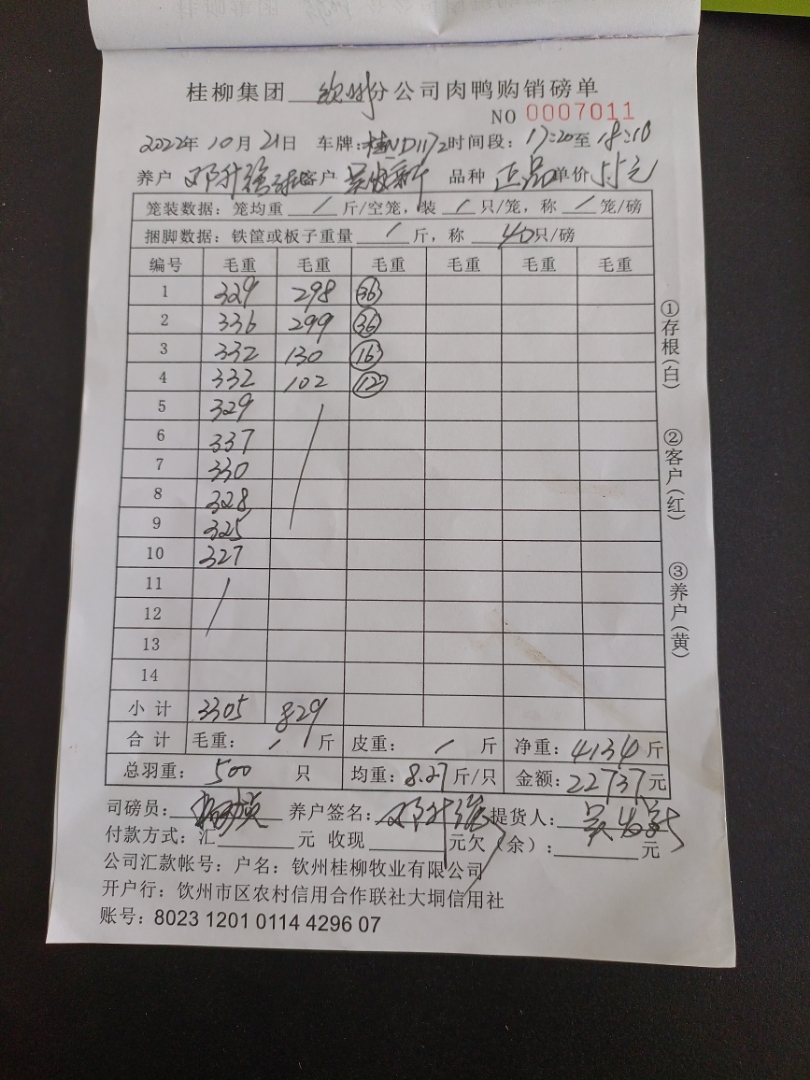 桂柳集团 钦州 分公司肉鸭购销磅单
NO 0007011
2022年 10月 21日 车牌：桂ND1172 时间段：17:20至 18:10
养户 邓升强 客户 吴发新 品种 正品 单价 5.5元
笼装数据：笼均重 / 斤/空笼，装 / 只/笼，称 / 笼/磅
捆脚数据：铁筐或板子重量 / 斤，称 40只/磅
编号 毛重 毛重 毛重 毛重 毛重 毛重
1 329 298 36
2 336 299 36
3 332 130 16
4 332 102 12
5 329 /
6 337
7 330
8 328
9 325
10 327
11 /
12
13
14
小计 3305 829
合计 毛重： / 斤 皮重： / 斤 净重：4134斤
总羽重：500 只 均重：8.27斤/只 金额：22737元
司磅员： 养户签名：邓升强 提货人：吴发新
付款方式：汇 元 收现 元欠（余）： 元
公司汇款帐号：户名：钦州桂柳牧业有限公司
开户行：饮州市区农村信用合作联社大垌信用社
账号：8023 1201 0114 4296 07
①存根（白）
②客户（红）
③养户（黄）